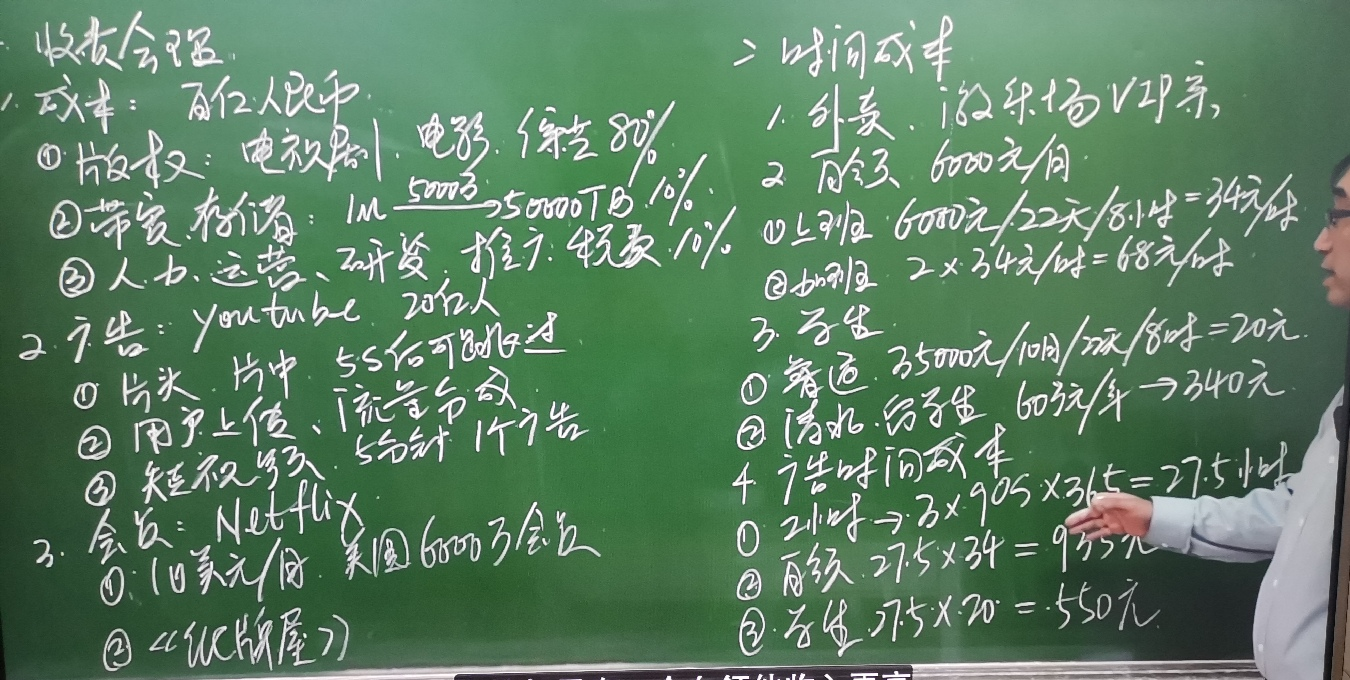 收费合理
1. 成本：百亿人民币
① 版权：电视剧、电影、综艺 80%
② 带宽、存储：1M 5000万→50000TB 10%
③ 人力、运营、研发、推广、税费 10%
2. 广告：youtube 20亿人
① 片头、片中 5S后可跳过
② 用户上传、流量分成
③ 短视频 5分钟 1个广告
3. 会员：Netflix
① 10美元/月 美国6000万会员
② 《纸牌屋》
二 时间成本
1. 外卖、游乐场VIP票
2. 月领 6000元/月
① 上班 6000元/22天/8小时=34元/时
② 加班 2×34元/时=68元/时
3. 学生
① 普通 35000元/10月/22天/8时=20元
② 清北、留学生 60万元/年→340元
4. 广告时间成本
① 2小时→3×90S×365=27.5小时
② 白领 27.5×34=935元
③ 学生 27.5×20=550元